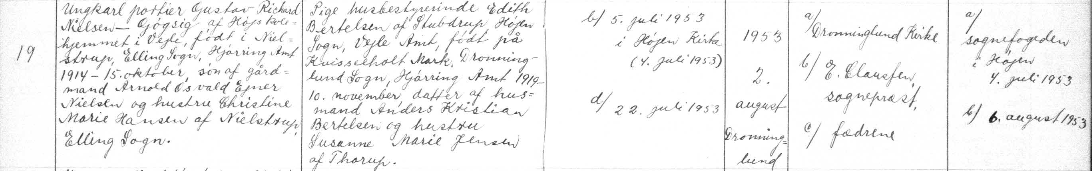 19
Ungkarl portier Gustav Richard
Nielsen — Gjøgsig af Højskole-
hjemmet i Vejle, født i Niel-
strup, Elling Sogn, Hjørring Amt
1914 – 15. oktober, søn af gård-
mand Arnold Osvald Ejner
Nielsen og hustru Christine
Marie Hansen af Nielstrup,
Elling Sogn.
Pige husbestyrerinde Edith
Bertelsen af Stubdrup, Højen
Sogn, Vejle Amt, født på
Knisselholt Mark, Dronning-
lund Sogn, Hjørring Amt 1919-
10. november datter af hus-
mand Anders Kristian
Bertelsen og hustru
Susanne Marie Jensen
af Thorup.
b/ 5. juli 1953
i Højen Kirke
(4. juli 1953)
d/ 22. juli 1953
1953
2.
august
Dronning-
lund
a/
Dronninglund Kirke
b/ E. Clausen,
sognepræst,
c/ fædrene
a/
sognefogeden
i Højen
4. juli 1953
b/ 6. august 1953